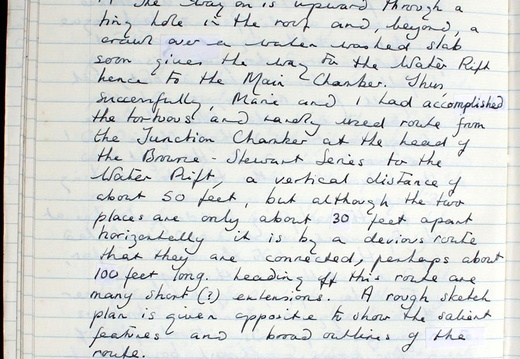 The way on is upward through a
tiny hole in the roof and, beyond, a
crawl over a water washed slab
soon gives the way to the Water Rift
hence to the Main Chamber. Thus
successfully, Marie and I had accomplished
the tortuous and rarely used route from
the Junction Chamber at the head of
the Bourne - Stewart Series to the
Water Rift, a vertical distance of
about 50 feet, but although the two
places are only about 30 feet apart
horizontally it is by a devious route
that they are connected, perhaps about
100 feet long. Leading off this route are
many short (?) extensions. A rough sketch
plan is given opposite to show the salient
features and broad outlines of the
route.